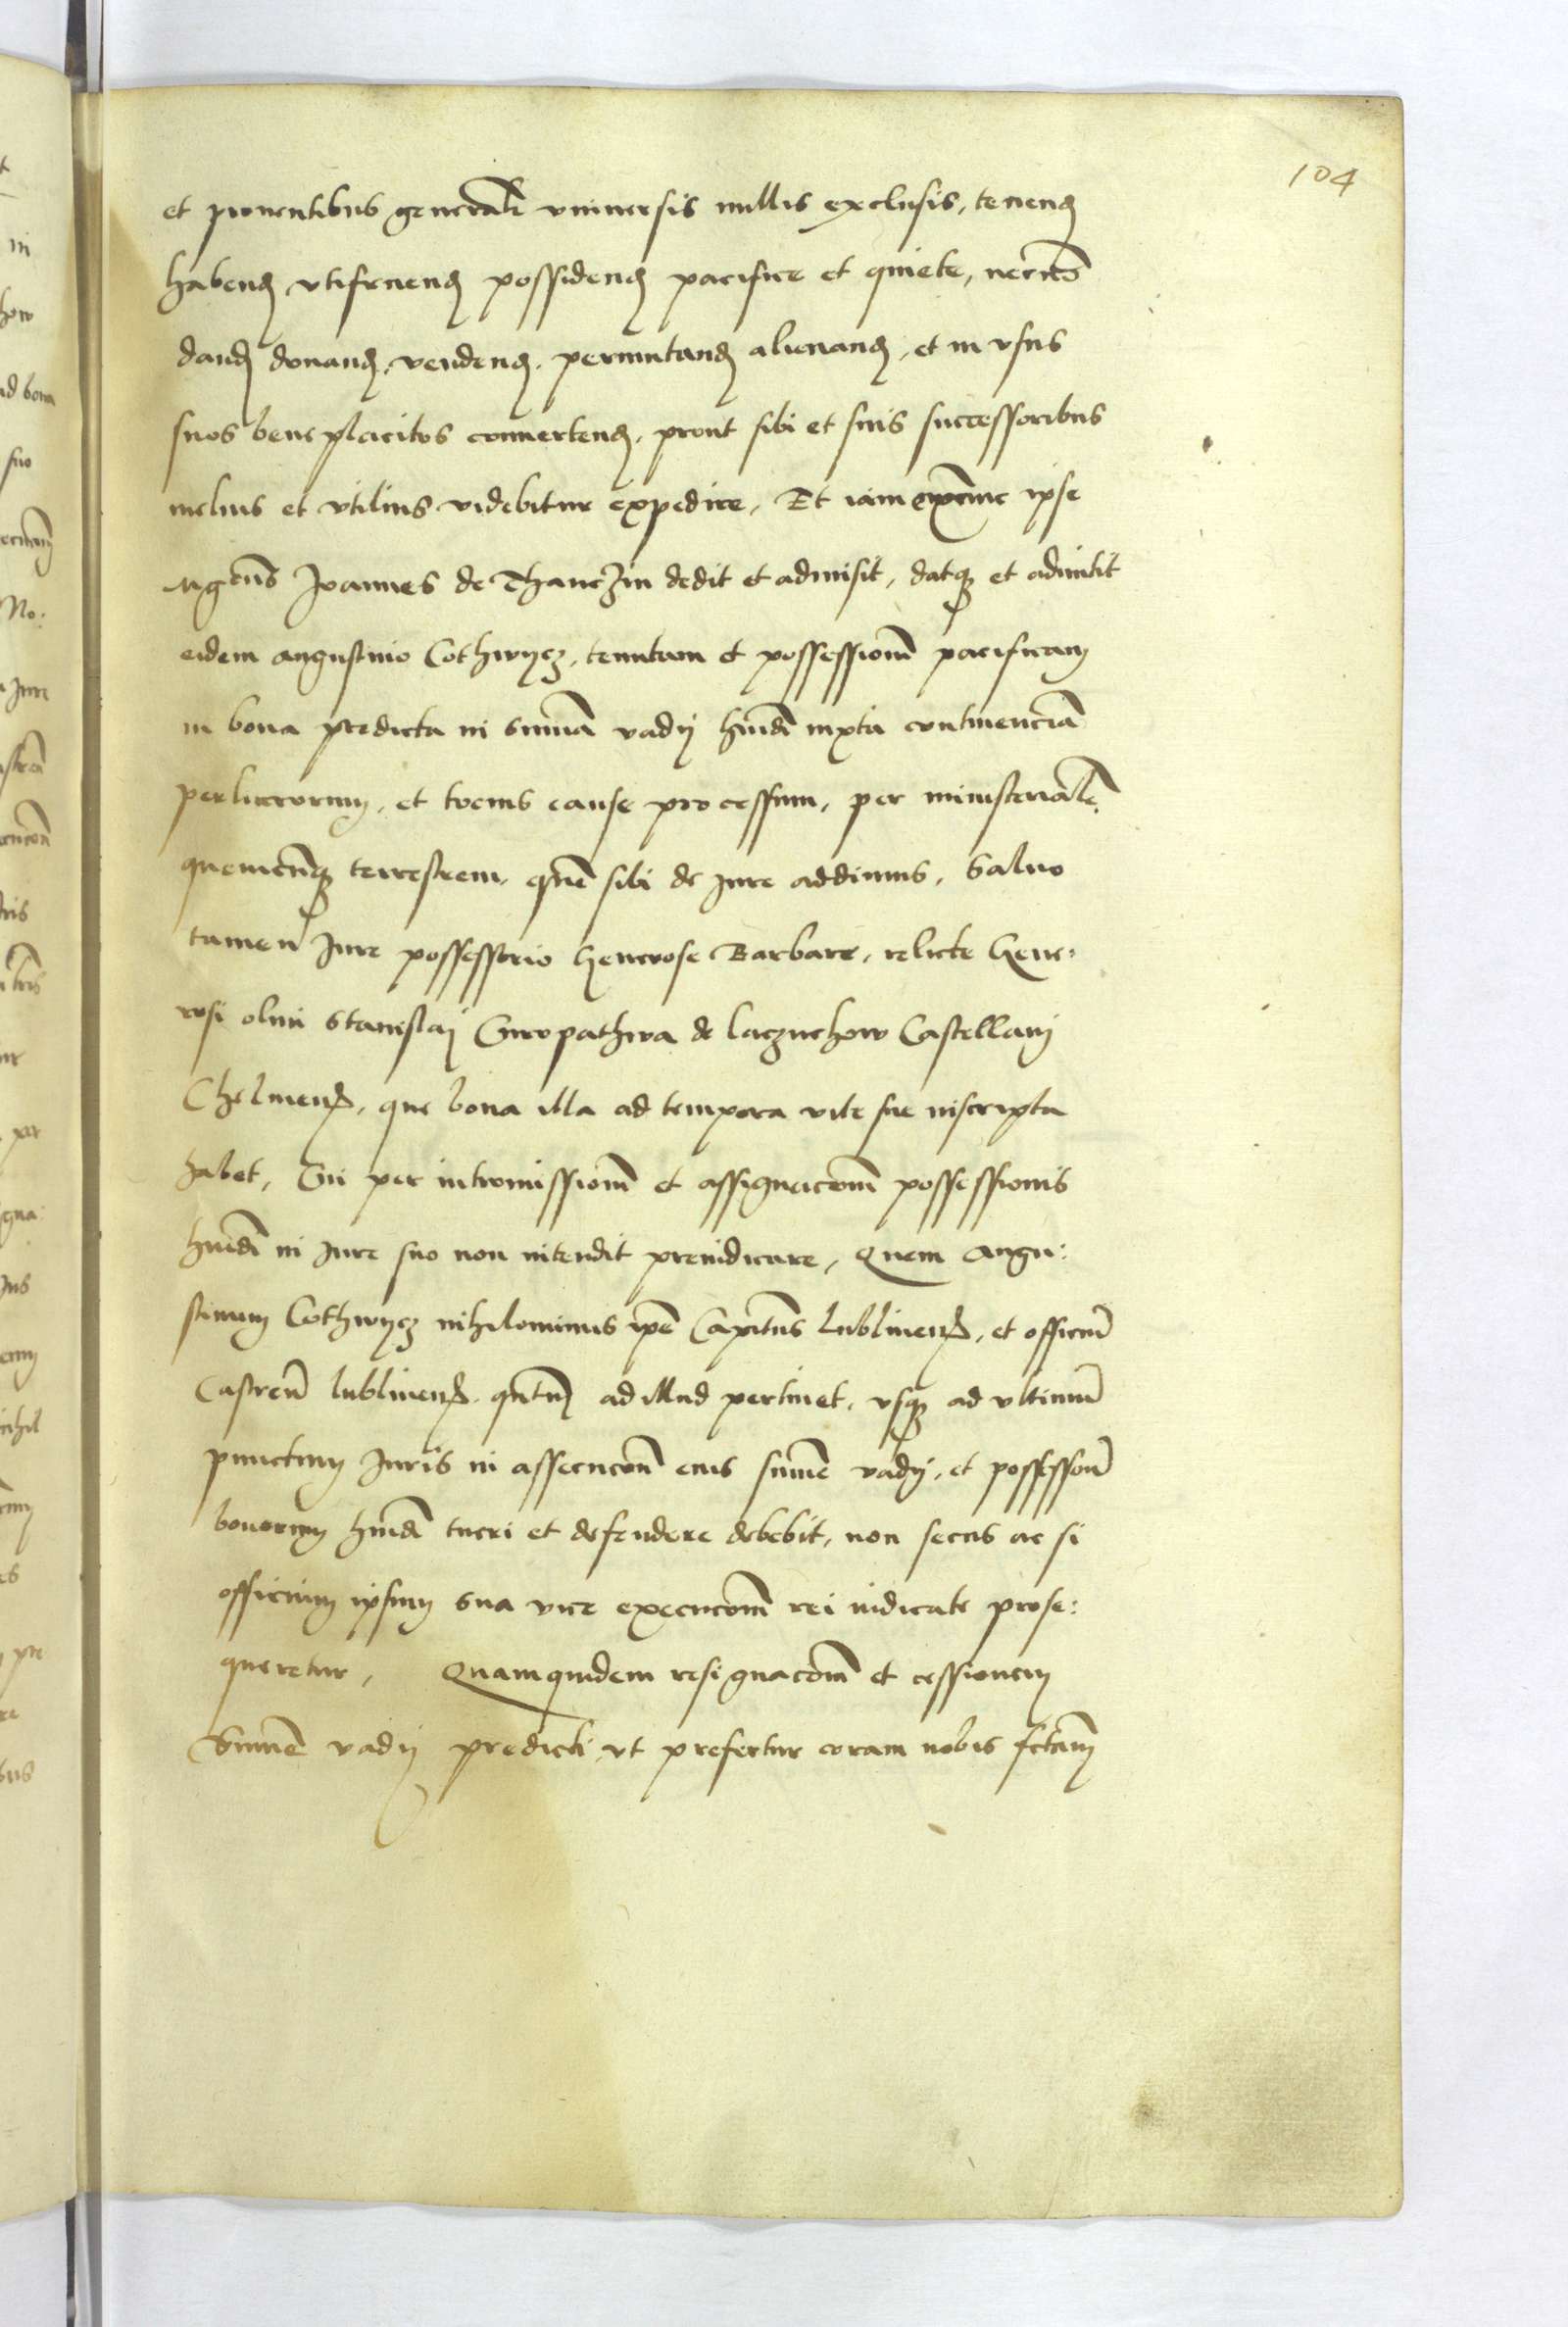 104
et prouentibus generali vniuersis nullis exclusis, tenend
habend vtifruend possidend pacifice et quiete, necno
dand donand, vendend, permutand alienand, et in vsus
suos beneplacitos conuertend, prout sibi et suis successoribus
melius et vtilius videbitur expedire, Et iam extunc ipse
Mgcus Joannes de Thanczin dedit et admisit, datq et admittit
eidem augustino Cothwycz, tenutam et possessiom pacificam
in bona predicta in summa vadij hmoi iuxta continencia
perlucrorum, et tocius cause processum, per ministeriale
quemcunq terrestrem, que sibi de jure addimus, Saluo
tamen Jure possessorio Generose Barbare, relicte Gene:
rosi olim Stanislai Curopathwa de laczuchow Castellani
Chelmen, que bona illa ad tempora vite sue inscripta
habet, Cui per intromissiom et assignacom possessionis
hmoi in Jure suo non intendit preiudicare, Quem Augu:
stinum Cothwycz nihilominus ipe Capitus lublinen, et officiu
Castren lublinen, qntu ad illud pertinet, vsq ad vltimu
punctum Juris in assecucon eius summe vadij, et possession
bonorum hmoi tueri et defendere debebit, non secus ac si
officium ipsum sua vice execucom rei iudicate prose:
queretur, Quamquidem resignacom et cessionem
Summe vadij predicti vt prefertur coram nobis fctam